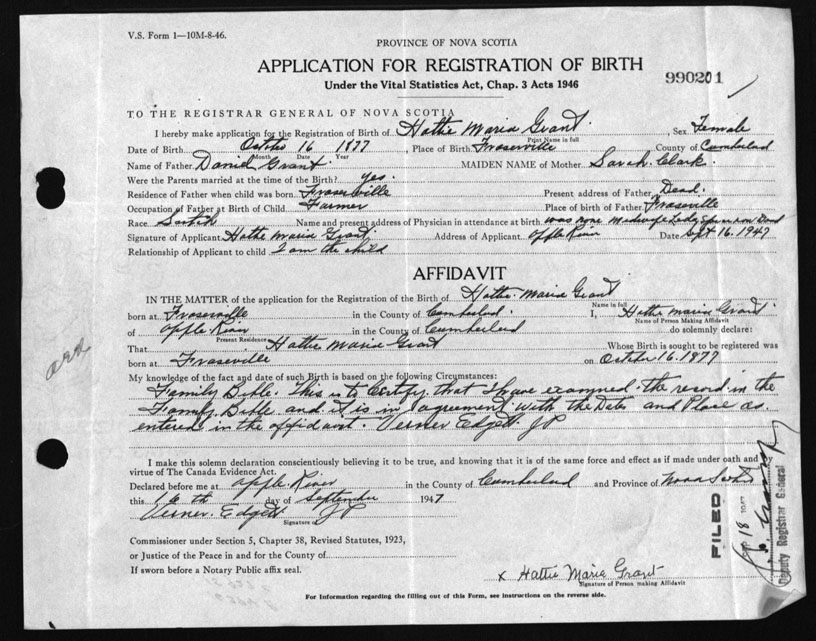 V.S. Form 1—10M-8-46.
PROVINCE OF NOVA SCOTIA
APPLICATION FOR REGISTRATION OF BIRTH
990201
Under the Vital Statistics Act, Chap. 3 Acts 1946
TO THE REGISTRAR GENERAL OF NOVA SCOTIA
I hereby make application for the Registration of Birth of Hattie Maria Grant. Sex Female
Print Name in full
Date of Birth October 16 1877, Place of Birth Fraserville County of Cumberland
Month Date Year
Name of Father Daniel Grant. MAIDEN NAME of Mother Sarah Clark.
Were the Parents married at the time of the Birth? yes.
Residence of Father when child was born Fraserville Present address of Father Dead.
Occupation of Father at Birth of Child Farmer Place of birth of Father Fraserville
Race Scotch Name and present address of Physician in attendance at birth was none Midwife Lady Dead
Signature of Applicant Hattie Maria Grant. Address of Applicant Apple River Date Sept 16. 1947
Relationship of Applicant to child I am the child
AFFIDAVIT
IN THE MATTER of the application for the Registration of the Birth of Hattie Maria Grant
Name in full
born at Fraserville in the County of Cumberland. I, Hattie Maria Grant
Name of Person Making Affidavit
of Apple River in the County of Cumberland do solemnly declare:
Present Residence
That Hattie Maria Grant Whose Birth is sought to be registered was
born at Fraserville on October 16. 1877
My knowledge of the fact and date of such Birth is based on the following Circumstances:
Family Bible. This is to Certify that I have examined the record in the
Family Bible and it is in agreement with the Date and Place as
entered in the affidavit. Verner Edgett JP
I make this solemn declaration conscientiously believing it to be true, and knowing that it is of the same force and effect as if made under oath and by
virtue of The Canada Evidence Act.
Declared before me at Apple River in the County of Cumberland and Province of Nova Scotia
this 16th day of September 1947
Verner Edgett JP
Signature of
Commissioner under Section 5, Chapter 38, Revised Statutes, 1923,
or Justice of the Peace in and for the County of
If sworn before a Notary Public affix seal.
x Hattie Maria Grant
Signature of Person making Affidavit
For Information regarding the filling out of this Form, see instructions on the reverse side.
FILED
18 1947
Deputy Registrar General